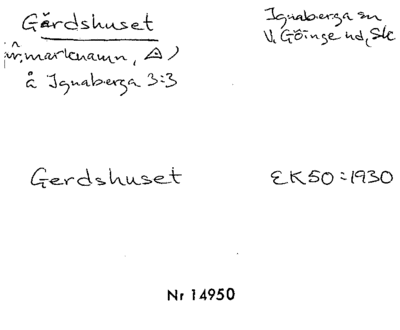 Gärdshuset
Ignaberga sn
V. Göinge hd, Sk
marknamn,
å Ignaberga 3:3
Gerdshuset
EK50:1930
Nr 14950